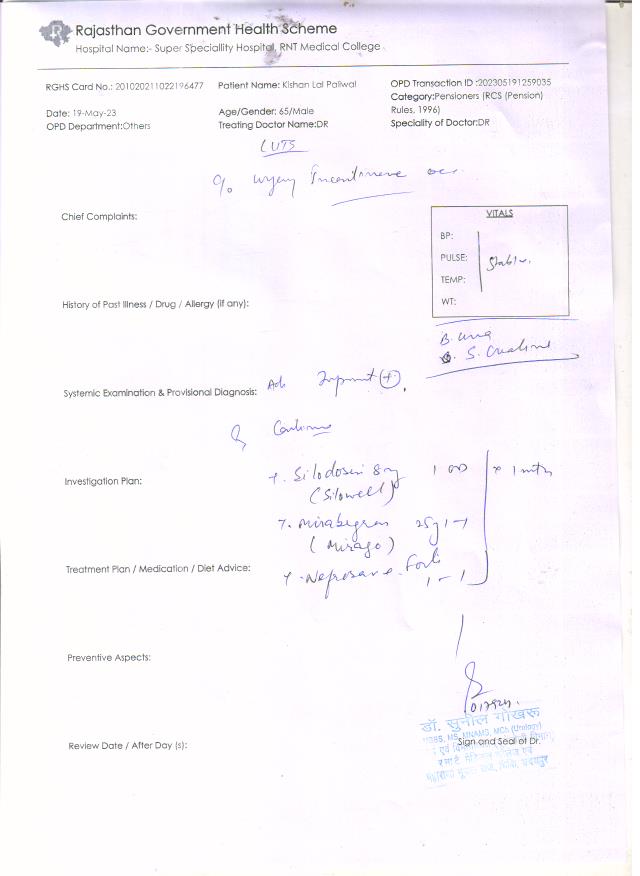 Rajasthan Government Health Scheme
Hospital Name:- Super Speciallity Hospital, RNT Medical College
RGHS Card No.: 201020211022196477 Patient Name: Kishan Lal Paliwal OPD Transaction ID :202305191259035
Category:Pensioners (RCS (Pension) Rules, 1996)
Date: 19-May-23 Age/Gender: 65/Male
OPD Department:Others Treating Doctor Name:DR Speciality of Doctor:DR
LUTS
c/o Incontinence
Chief Complaints:
VITALS
BP:
PULSE: Stable.
TEMP:
WT:
History of Past Illness / Drug / Allergy (if any):
B. Urea
S. Creatinine
Systemic Examination & Provisional Diagnosis: Adv
Continue
Investigation Plan:
T. Silodosin 8mg 1 OD x 1 mth
(Silowell)
T. Mirabegron 25mg 1-1
(Mirago)
Treatment Plan / Medication / Diet Advice:
T. Neprosave Forte
1-1
Preventive Aspects:
डॉ. सुनील गोखरू
MBBS, MS, MNAMS, MCh (Urology)
Review Date / After Day (s): Sign and Seal of Dr.